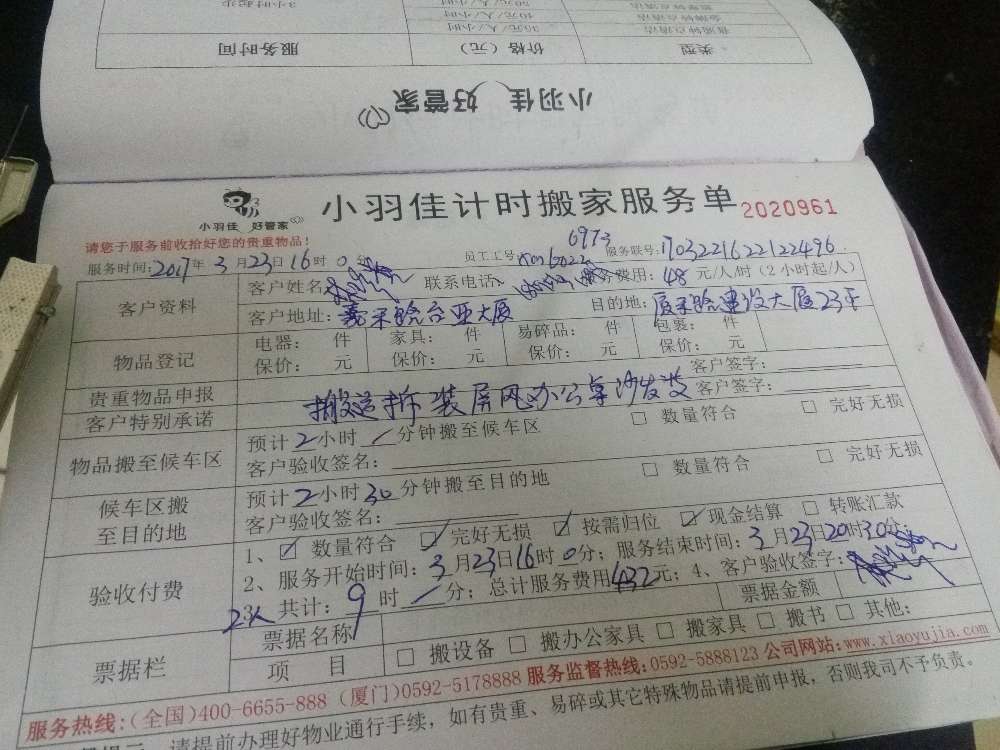 3小时起步 50元/人/小时
40元/人/小时
30元/人/小时
服务时间 价格（元） 类型
小羽佳 好管家
小羽佳 好管家
小羽佳计时搬家服务单 2020961
请您于服务前收拾好您的贵重物品！
服务时间：2017年3月23日16时0分 员工工号 6973 服务联号：170322162212496
客户资料 客户姓名 联系电话 服务费用：48元/人/时（2小时起/人）
客户地址： 台亚大厦 目的地： 建设大厦23F
物品登记 电器： 件 家具： 件 易碎品： 件 包装： 件
保价： 元 保价： 元 保价： 元 保价： 元
贵重物品申报 客户签字：
客户特别承诺 搬运拆装屏风办公桌沙发 客户签字：
物品搬至候车区 预计2小时/分钟搬至候车区 □ 数量符合 □ 完好无损
客户验收签名：
候车区搬至目的地 预计2小时30分钟搬至目的地 □ 数量符合 □ 完好无损
客户验收签名：
验收付费 1、☑ 数量符合 ☑ 完好无损 ☑ 按需归位 ☑ 现金结算 □ 转账汇款
2、服务开始时间：3月23日16时0分；服务结束时间：3月23日20时30分；
2人 3、共计：9时/分；总计服务费用432元；4、客户验收签字：
票据栏 票据名称 票据金额
项 目 □ 搬设备 □ 搬办公家具 □ 搬家具 □ 搬书 □ 其他：
服务热线：（全国）400-6655-888（厦门）0592-5178888 服务监督热线：0592-5888123 公司网站：www.xiaoyujia.com
请提前办理好物业通行手续，如有贵重、易碎或其它特殊物品请提前申报，否则我司不予负责。